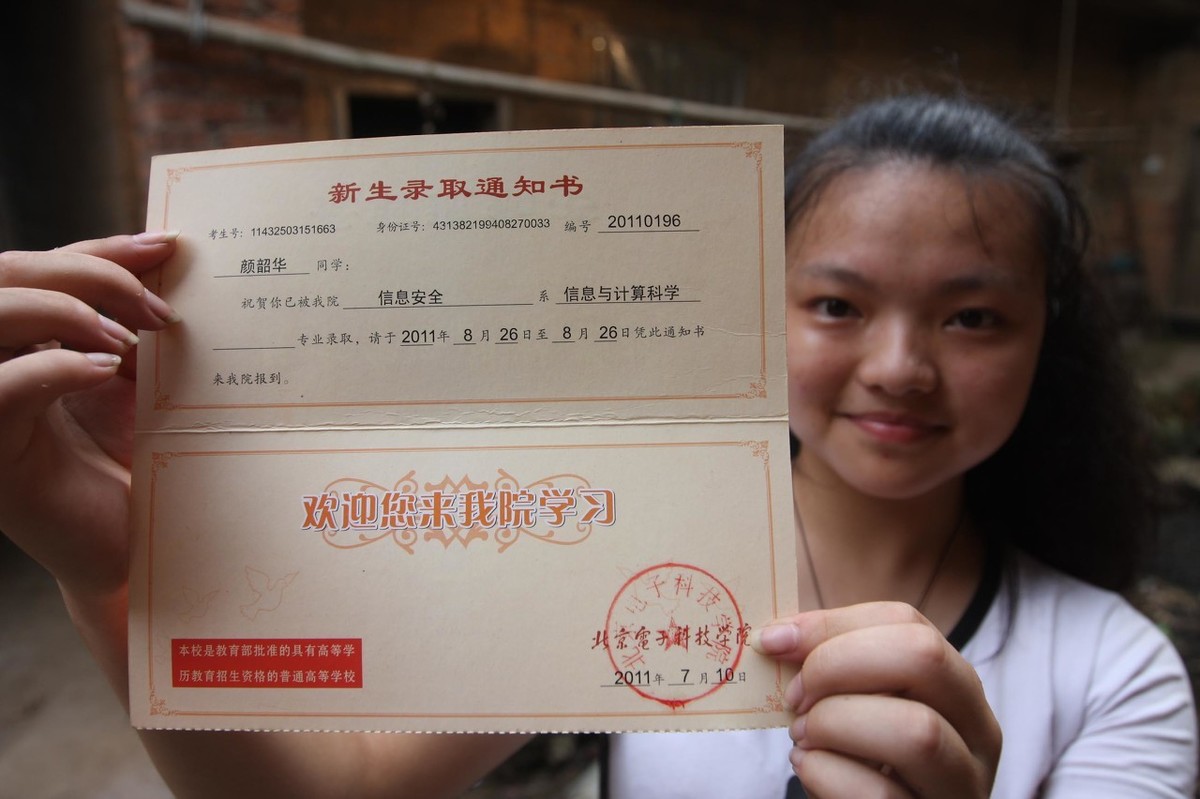 新生录取通知书
考生号：11432503151663 身份证号：431382199408270033 编号 20110196
颜韶华 同学：
祝贺你已被我院 信息安全 系 信息与计算科学
专业录取，请于 2011年 8 月 26 日至 8 月 26 日凭此通知书
来我院报到。
欢迎您来我院学习
本校是教育部批准的具有高等学
历教育招生资格的普通高等学校
北京電子科技学院
2011年 7 月 10日